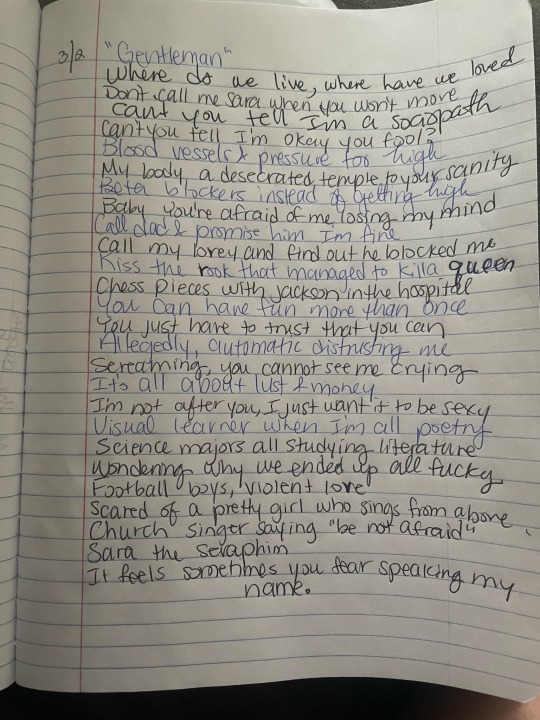 3/2 "Gentleman"
Where do we live, where have we loved
Dont call me Sara when you won't move
Cant you tell I'm a sociopath
Can't you tell I'm okay you fool?
Blood vessels & pressure too high
My body, a desecrated temple to your sanity
Beta blockers instead of getting high
Baby you're afraid of me losing my mind
Call dad & promise him I'm fine
Call my lovey and find out he blocked me
Kiss the rook that managed to kill a queen
Chess pieces with Jackson in the hospital
You can have fun more than once
You just have to trust that you can
Allegedly, automatic distrusting me
Screaming, you cannot see me crying
It's all about lust & money
I'm not after you, I just want it to be sexy
Visual learner when I'm all poetry
Science majors all studying literature
Wondering why we ended up all fucky
Football boys, violent love
Scared of a pretty girl who sings from above
Church singer saying "be not afraid"
Sara the Seraphim
It feels sometimes you fear speaking my
name.